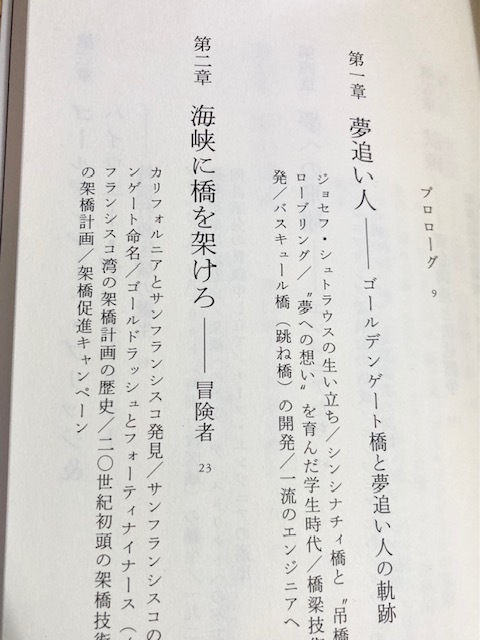 プロローグ 9
第一章 夢追い人――ゴールデンゲート橋と夢追い人の軌跡
ジョセフ・シュトラウスの生い立ち/シンシナチィ橋と〝吊橋
ローブリング/〝夢への想い〟を育んだ学生時代/橋梁技
発/バスキュール橋(跳ね橋)の開発/一流のエンジニアへ
第二章 海峡に橋を架けろ――冒険者 23
カリフォルニアとサンフランシスコ発見/サンフランシスコの
ンゲート命名/ゴールドラッシュとフォーティナイナース(
フランシスコ湾の架橋計画の歴史/二〇世紀初頭の架橋技術
の架橋計画/架橋促進キャンペーン